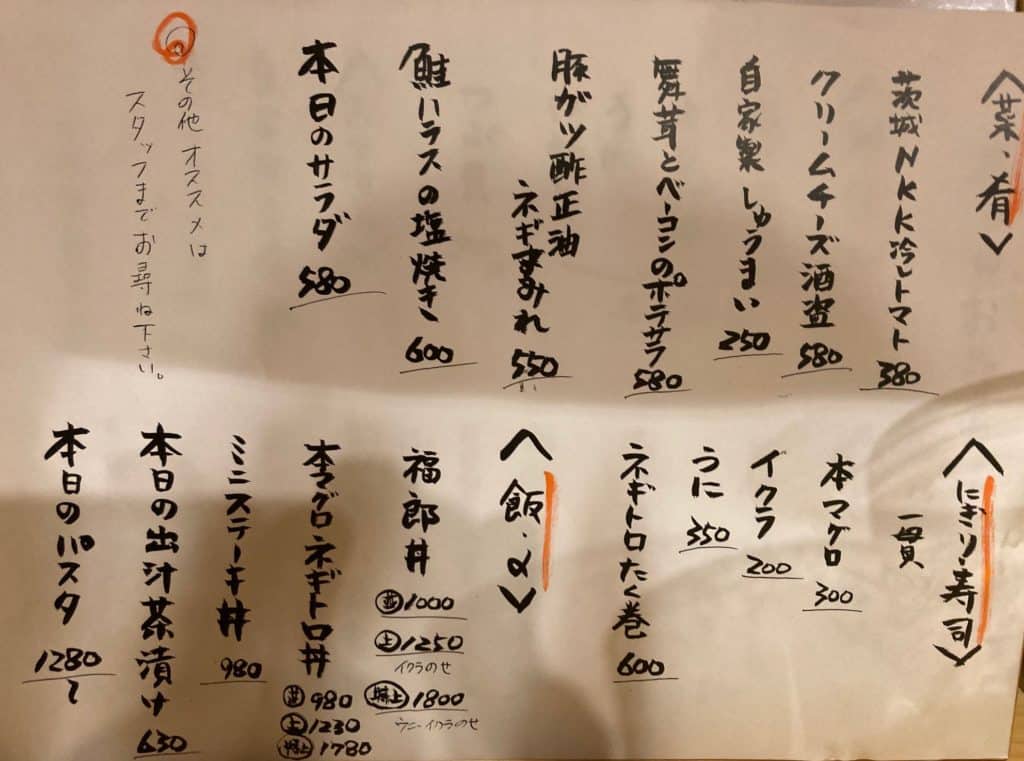 〈菜・肴〉
茨城NKK冷しトマト
380
クリームチーズ酒盗
580
自家製しゅうまい
250
舞茸とベーコンのポテサラ
580
豚ガツ酢正油
ネギまみれ
550
鮭ハラスの塩焼き
600
本日のサラダ
580
その他 オススメは
スタッフまでお尋ね下さい。
〈にぎり・寿司〉
一貫
本マグロ
300
イクラ
200
うに
350
ネギトロたく巻
600
〈飯・〆〉
福郎丼
並 1000
上 1250
イクラのせ
特上 1800
ウニ・イクラのせ
本マグロネギトロ丼
並 980
上 1230
特上 1780
ミニステーキ丼
980
本日の出汁茶漬け
630
本日のパスタ
1280〜